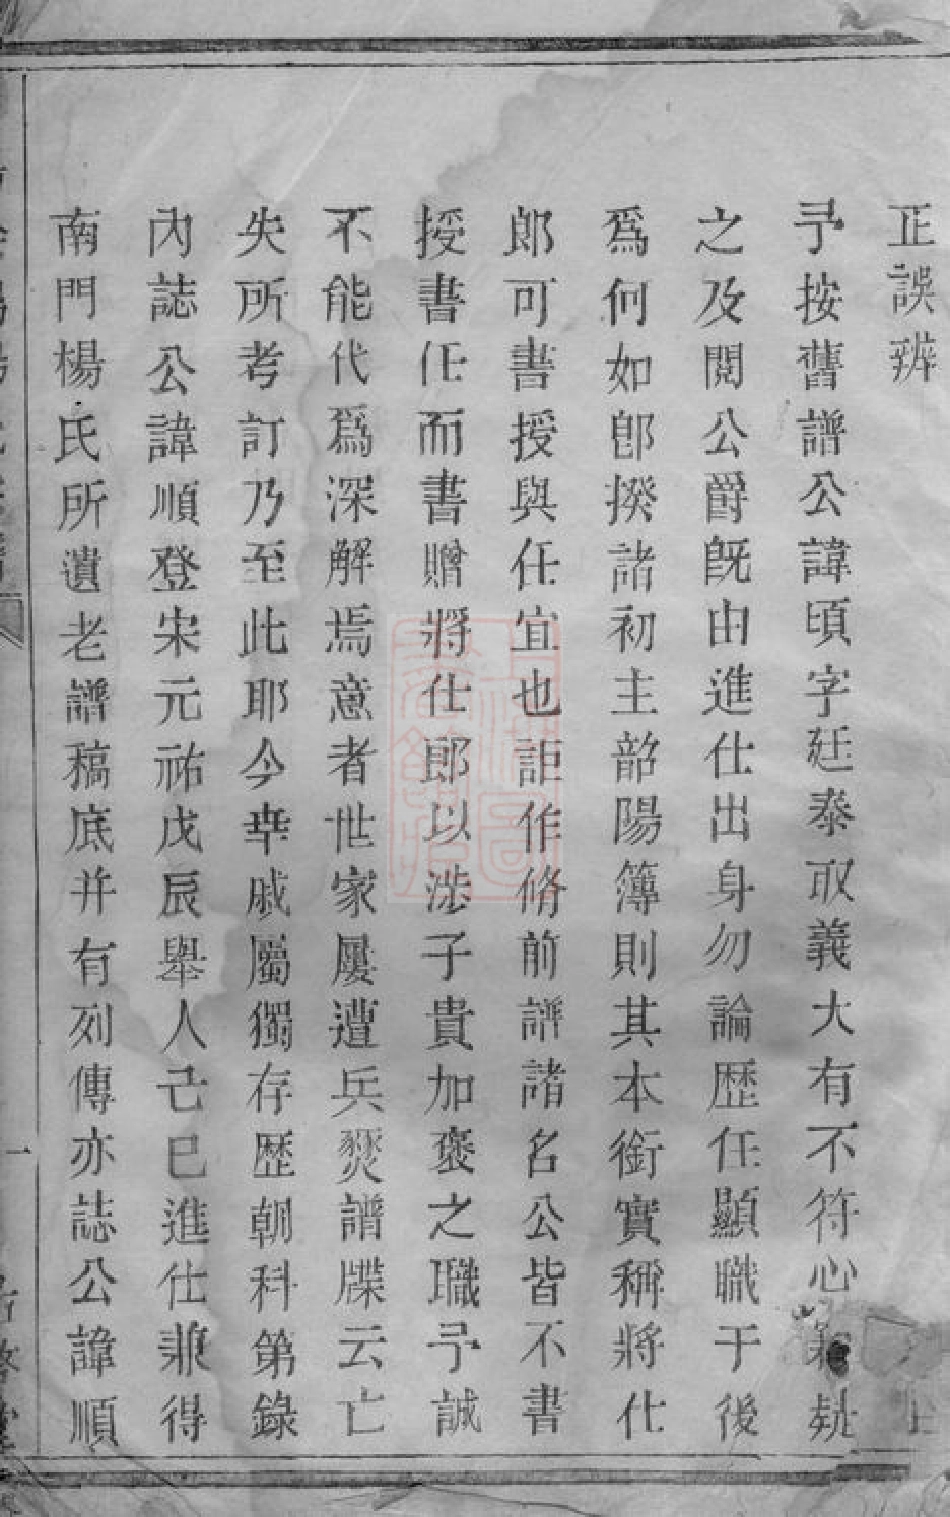 正誤辨
予按舊譜公諱頃字廷泰取義大有不符心疑
之及閱公爵旣由進仕出身勿論歴任顯職于後
爲何如卽揆諸初主韶陽簿則其本銜實稱將仕
郎可書授與任宜也詎作脩前譜諸名公皆不書
授書任而書贈將仕郎以涉子貴加褒之職予誠
不能代爲深解焉意者世家屢遭兵燹譜牒云亡
失所考訂乃至此耶今幸戚屬獨存歴朝科第錄
內誌公諱順登宋元祐戊辰舉人己巳進仕兼得
南門楊氏所遺老譜稿底并有列傳亦誌公諱順